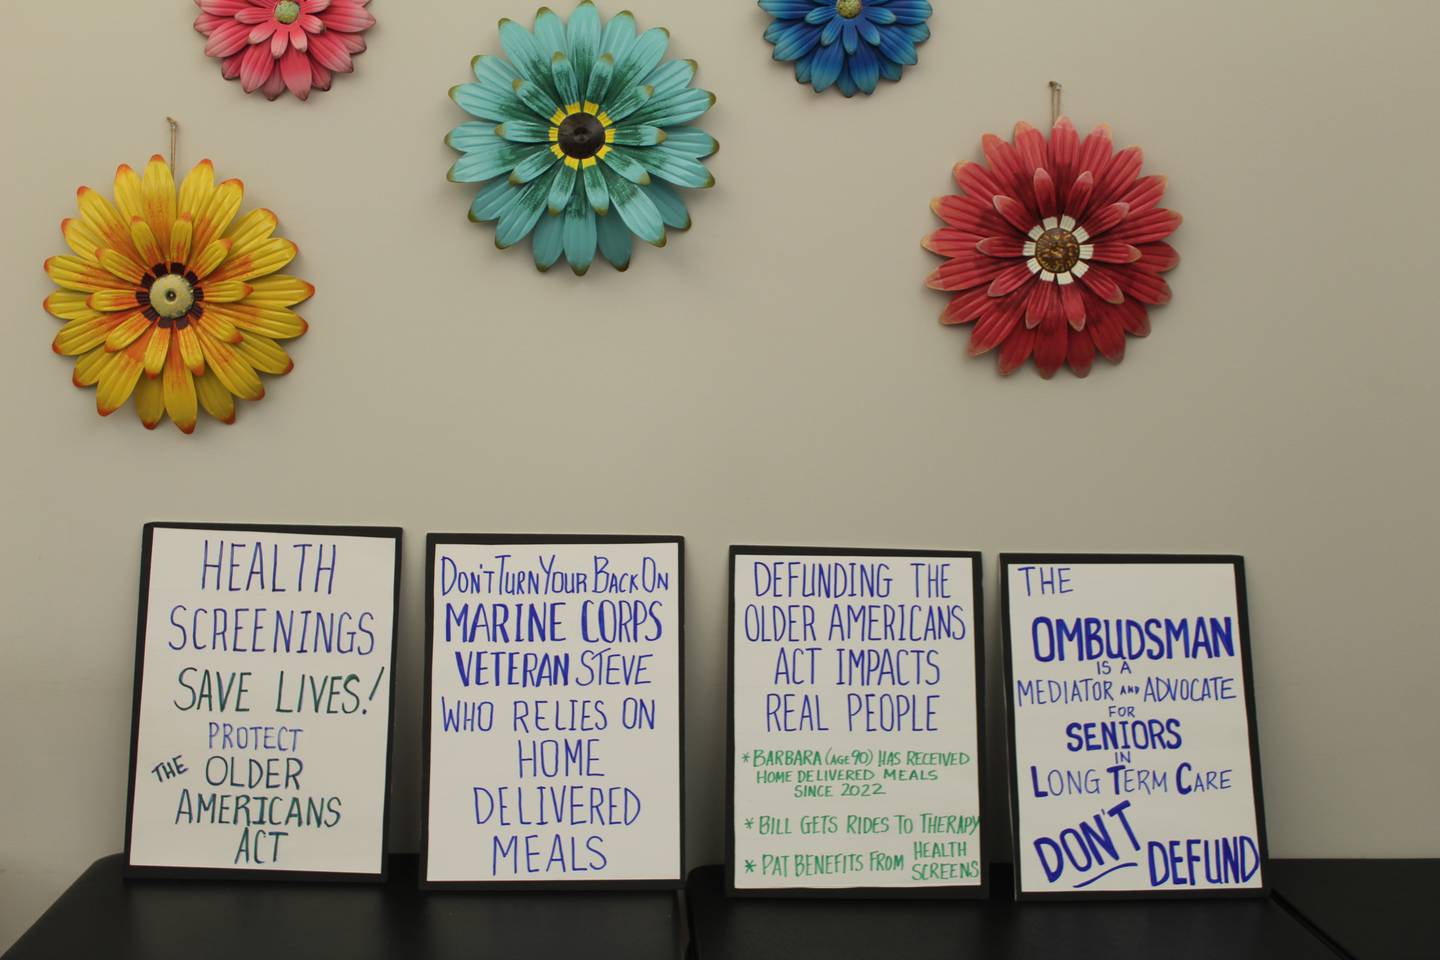 HEALTH
SCREENINGS
SAVE LIVES!
PROTECT
THE OLDER
AMERICANS
ACT
DON'T TURN YOUR BACK ON
MARINE CORPS
VETERAN STEVE
WHO RELIES ON
HOME
DELIVERED
MEALS
DEFUNDING THE
OLDER AMERICANS
ACT IMPACTS
REAL PEOPLE
* BARBARA (AGE 90) HAS RECEIVED
HOME DELIVERED MEALS
SINCE 2022
* BILL GETS RIDES TO THERAPY
* PAT BENEFITS FROM HEALTH
SCREENS
THE
OMBUDSMAN
IS A
MEDIATOR AND ADVOCATE
FOR
SENIORS
IN
LONG TERM CARE
DON'T DEFUND